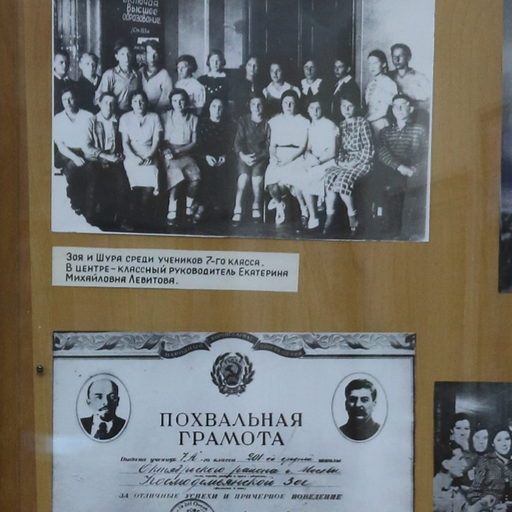 ВКЛЮЧАЯ
ВЫСШЕЕ
ОБРАЗОВАНИЕ
Зоя и Шура среди учеников 7-го класса.
В центре – классный руководитель Екатерина
Михайловна Левитова.
ПОХВАЛЬНАЯ
ГРАМОТА
Выдана ученице 7 "А"-го класса 201 ой средней школы
Октябрьского района г. Москвы
Космодемьянской Зое
ЗА ОТЛИЧНЫЕ УСПЕХИ И ПРИМЕРНОЕ ПОВЕДЕНИЕ